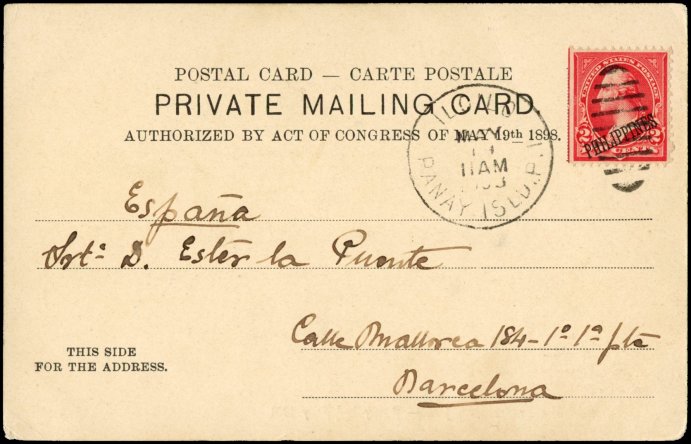 POSTAL CARD — CARTE POSTALE
PRIVATE MAILING CARD
AUTHORIZED BY ACT OF CONGRESS OF MAY 19th 1898.
UNITED STATES POSTAGE
PHILIPPINES
2 CENTS 2
ILOILO
MAY
11AM
PANAY ISLD. P.I.
España
Srta D. Ester la Puente
Calle Mallorca 184-1º 1ª pta
Barcelona
THIS SIDE
FOR THE ADDRESS.